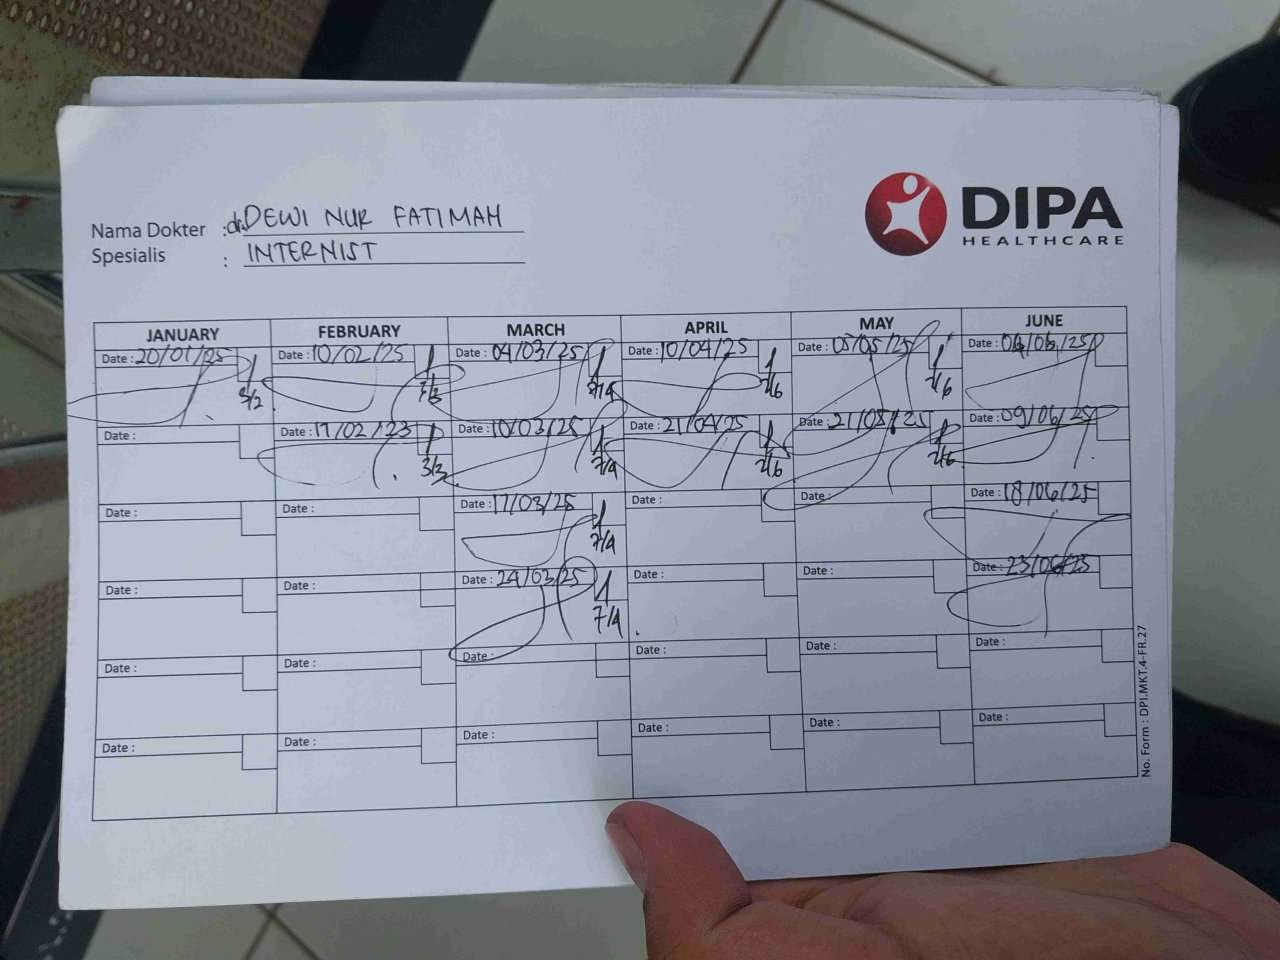 DIPA
HEALTHCARE
Nama Dokter : dr. DEWI NUR FATIMAH
Spesialis : INTERNIST
JANUARY FEBRUARY MARCH APRIL MAY JUNE
Date : 20/01/25 Date : 10/02/25 Date : 04/03/25 Date : 10/04/25 Date : 05/05/25 Date : 04/06/25
3/2 7/4 2/6 2/6
Date : Date : 17/02/23 Date : 10/03/25 Date : 21/04/25 Date : 21/05/25 Date : 09/06/25
3/3 7/4 2/6 2/6
Date : Date : Date : 17/03/25 Date : Date : Date : 18/06/25
7/4
Date : Date : Date : 24/03/25 Date : Date : Date : 23/06/25
7/4
Date : Date : Date : Date : Date : Date :
Date : Date : Date : Date : Date : Date :
No. Form : DPI.MKT.4-FR.27